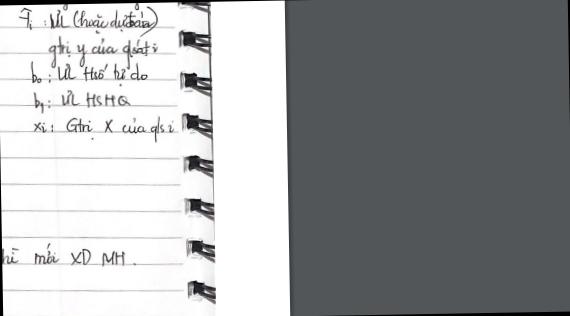 Ŷi : ƯL (hoặc dự đoán)
gtrị y của qsát i
b₀ : ƯL Hsố tự do
b₁ : ƯL HSHQ
xi : Gtrị X của qs i
hì mới XD MH.